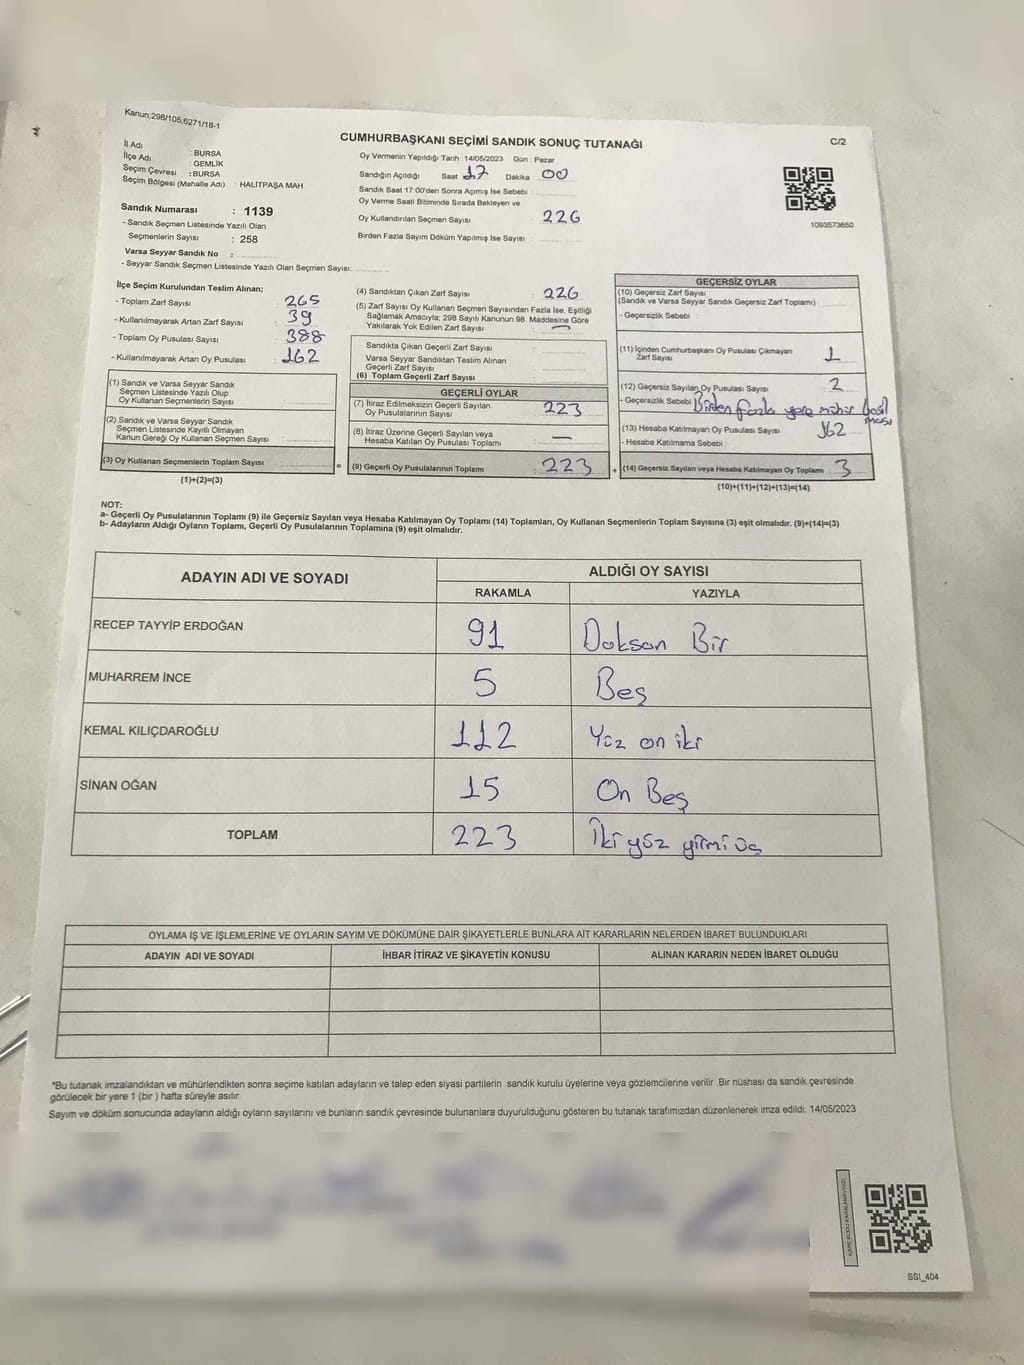 Kanun;298/105,6271/18-1
CUMHURBAŞKANI SEÇİMİ SANDIK SONUÇ TUTANAĞI
C/2
İl Adı : BURSA
İlçe Adı : GEMLİK
Seçim Çevresi : BURSA
Seçim Bölgesi (Mahalle Adı) : HALİTPAŞA MAH
Sandık Numarası : 1139
- Sandık Seçmen Listesinde Yazılı Olan
Seçmenlerin Sayısı : 258
Varsa Seyyar Sandık No :
- Seyyar Sandık Seçmen Listesinde Yazılı Olan Seçmen Sayısı:
Oy Vermenin Yapıldığı Tarih : 14/05/2023 Gün : Pazar
Sandığın Açıldığı Saat 17 Dakika : 00
Sandık Saat 17:00'den Sonra Açımış İse Sebebi :
Oy Verme Saati Bitiminde Sırada Bekleyen ve
Oy Kullandırılan Seçmen Sayısı 226
Birden Fazla Sayım Döküm Yapılmış İse Sayısı :
1093573650
İlçe Seçim Kurulundan Teslim Alınan;
- Toplam Zarf Sayısı : 265
- Kullanılmayarak Artan Zarf Sayısı : 39
- Toplam Oy Pusulası Sayısı : 388
- Kullanılmayarak Artan Oy Pusulası : 162
(1) Sandık ve Varsa Seyyar Sandık
Seçmen Listesinde Yazılı Olup
Oy Kullanan Seçmenlerin Sayısı :
(2) Sandık ve Varsa Seyyar Sandık
Seçmen Listesinde Kayıtlı Olmayan
Kanun Gereği Oy Kullanan Seçmen Sayısı :
(3) Oy Kullanan Seçmenlerin Toplam Sayısı :
(1)+(2)=(3)
(4) Sandıktan Çıkan Zarf Sayısı : 226
(5) Zarf Sayısı Oy Kullanan Seçmen Sayısından Fazla İse, Eşitliği
Sağlamak Amacıyla; 298 Sayılı Kanunun 98. Maddesine Göre
Yakılarak Yok Edilen Zarf Sayısı : —
Sandıkta Çıkan Geçerli Zarf Sayısı :
Varsa Seyyar Sandıktan Teslim Alınan
Geçerli Zarf Sayısı :
(6) Toplam Geçerli Zarf Sayısı :
GEÇERLİ OYLAR
(7) İtiraz Edilmeksizin Geçerli Sayılan
Oy Pusulalarının Sayısı : 223
(8) İtiraz Üzerine Geçerli Sayılan veya
Hesaba Katılan Oy Pusulası Toplamı : —
= (9) Geçerli Oy Pusulalarının Toplamı : 223 +
GEÇERSİZ OYLAR
(10) Geçersiz Zarf Sayısı
(Sandık ve Varsa Seyyar Sandık Geçersiz Zarf Toplamı) :
- Geçersizlik Sebebi :
(11) İçinden Cumhurbaşkanı Oy Pusulası Çıkmayan
Zarf Sayısı : 1
(12) Geçersiz Sayılan Oy Pusulası Sayısı : 2
- Geçersizlik Sebebi : Birden fazla yere mühür basılması
(13) Hesaba Katılmayan Oy Pusulası Sayısı : 162
- Hesaba Katılmama Sebebi :
(14) Geçersiz Sayılan veya Hesaba Katılmayan Oy Toplamı : 3
(10)+(11)+(12)+(13)=(14)
NOT:
a- Geçerli Oy Pusulalarının Toplamı (9) ile Geçersiz Sayılan veya Hesaba Katılmayan Oy Toplamı (14) Toplamları, Oy Kullanan Seçmenlerin Toplam Sayısına (3) eşit olmalıdır. (9)+(14)=(3)
b- Adayların Aldığı Oyların Toplamı, Geçerli Oy Pusulalarının Toplamına (9) eşit olmalıdır.
ADAYIN ADI VE SOYADI
ALDIĞI OY SAYISI
RAKAMLA YAZIYLA
RECEP TAYYİP ERDOĞAN 91 Doksan Bir
MUHARREM İNCE 5 Beş
KEMAL KILIÇDAROĞLU 112 Yüz on iki
SİNAN OĞAN 15 On Beş
TOPLAM 223 İki yüz yirmi üç
OYLAMA İŞ VE İŞLEMLERİNE VE OYLARIN SAYIM VE DÖKÜMÜNE DAİR ŞİKAYETLERLE BUNLARA AİT KARARLARIN NELERDEN İBARET BULUNDUKLARI
ADAYIN ADI VE SOYADI İHBAR İTİRAZ VE ŞİKAYETİN KONUSU ALINAN KARARIN NEDEN İBARET OLDUĞU
*Bu tutanak imzalandıktan ve mühürlendikten sonra seçime katılan adayların ve talep eden siyasi partilerin sandık kurulu üyelerine veya gözlemcilerine verilir .Bir nüshası da sandık çevresinde
görülecek bir yere 1 (bir ) hafta süreyle asılır.
Sayım ve döküm sonucunda adayların aldığı oyların sayılarını ve bunların sandık çevresinde bulunanlara duyurulduğunu gösteren bu tutanak tarafımızdan düzenlenerek imza edildi. 14/05/2023
KARE KODU KARALAMAYINIZ!
SSİ_404